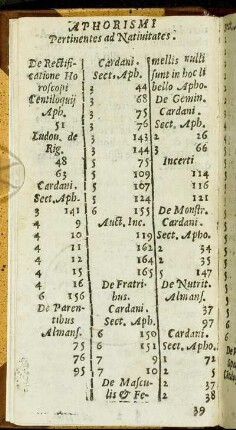 APHORISMI
Pertinentes ad Nativitates.
De Rectifi-
catione Ho
roscopi
Centiloquij
Aph.
51
Ludou. de
Rig.
48
63
Cardani.
Sect. Aph.
3 141
4 9
4 10
4 11
4 12
4 15
4 16
6 156
De Paren-
tibus
Almans.
75
76
95
Cardani.
Sect. Aph.
3 44
3 68
3 75
3 76
3 143
3 144
5 75
5 109
5 107
5 124
6 155
Auct. Inc.
119
162
164
165
De Fratri-
bus.
Cardani.
Sect. Aph.
6 150
6 151
7 9
7 10
De Mascu-
lis & Fe-
mellis nulli
sunt in hoc li
bello Apho.
De Gemin.
Cardani.
Sect. Aph.
2 26
3 66
Incerti
114
116
121
De Monstr.
Cardani.
Sect. Apho.
2 34
2 35
5 147
De Nutrit.
Almans.
37
97
Cardani.
Sect. Aph.
2 72
2 5
2 37
2 38
39